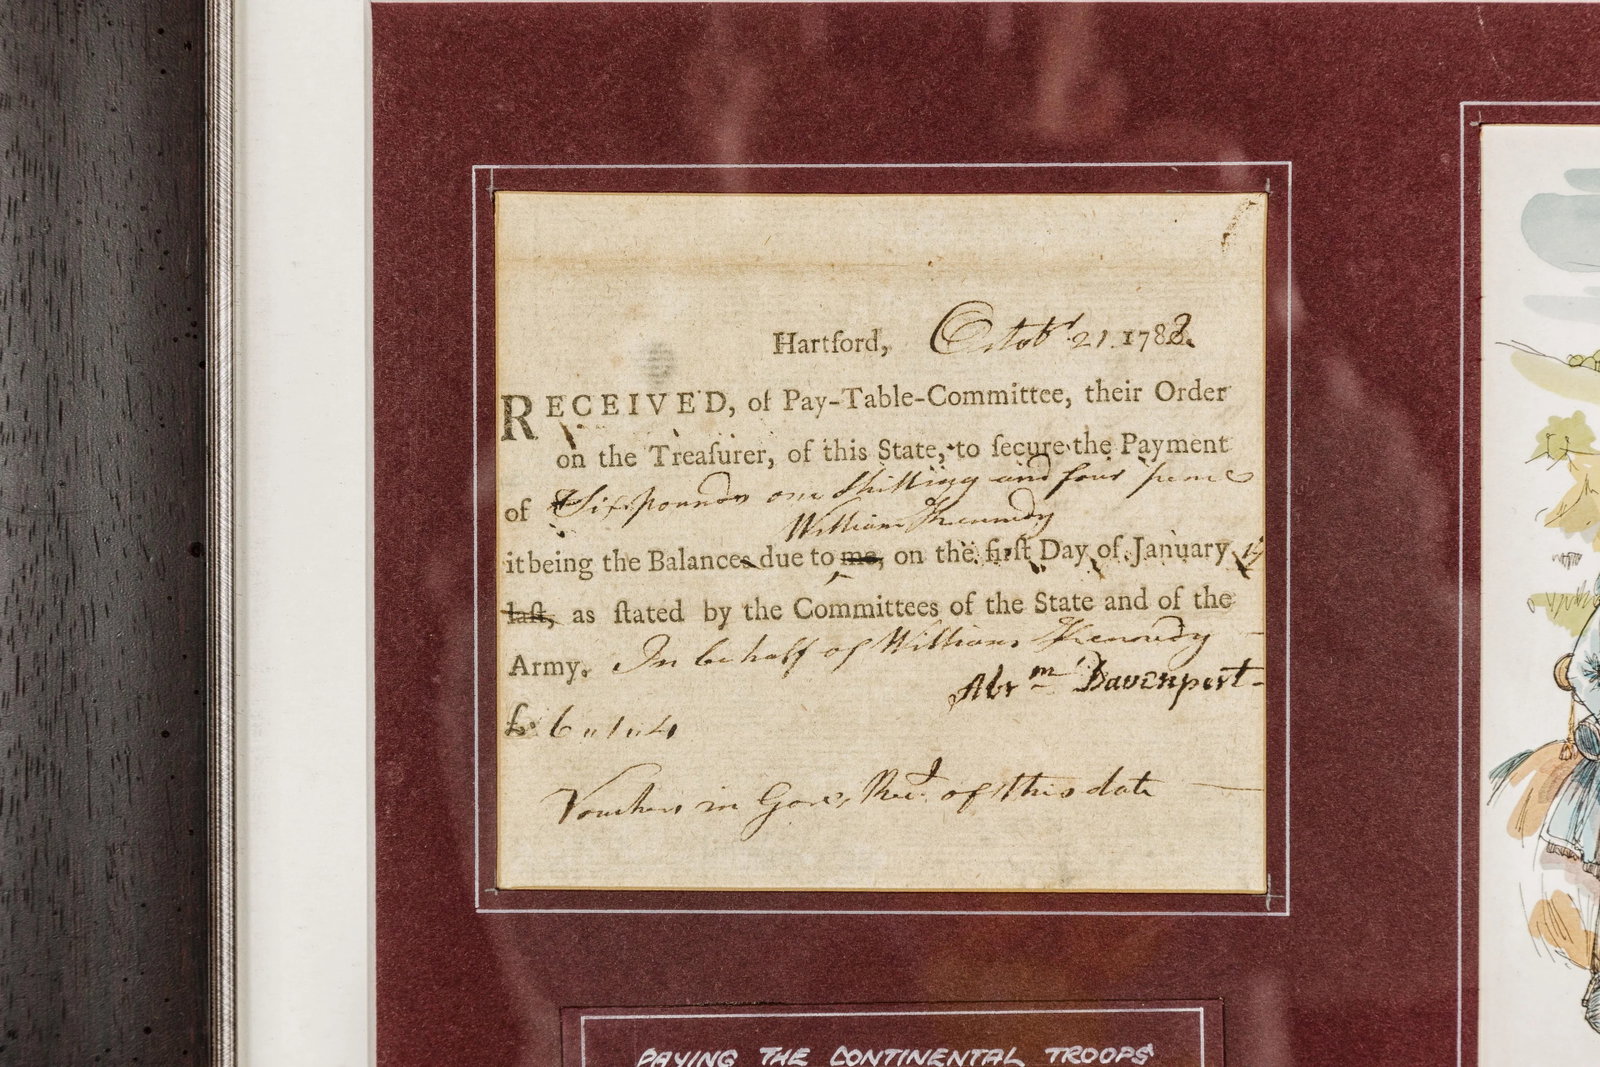 Hartford, Octobr 21. 1783.
RECEIVED, of Pay-Table-Committee, their Order
on the Treaſurer, of this State, to ſecure the Payment
of Six pounds one Shilling and four pence
William Kennedy
it being the Balances due to me, on the firſt Day of January
laſt, as ſtated by the Committees of the State and of the
Army. In behalf of William Kennedy
Abrm Davenport
£: 6 " 1 " 4
Vouchers in of this date
PAYING THE CONTINENTAL TROOPS